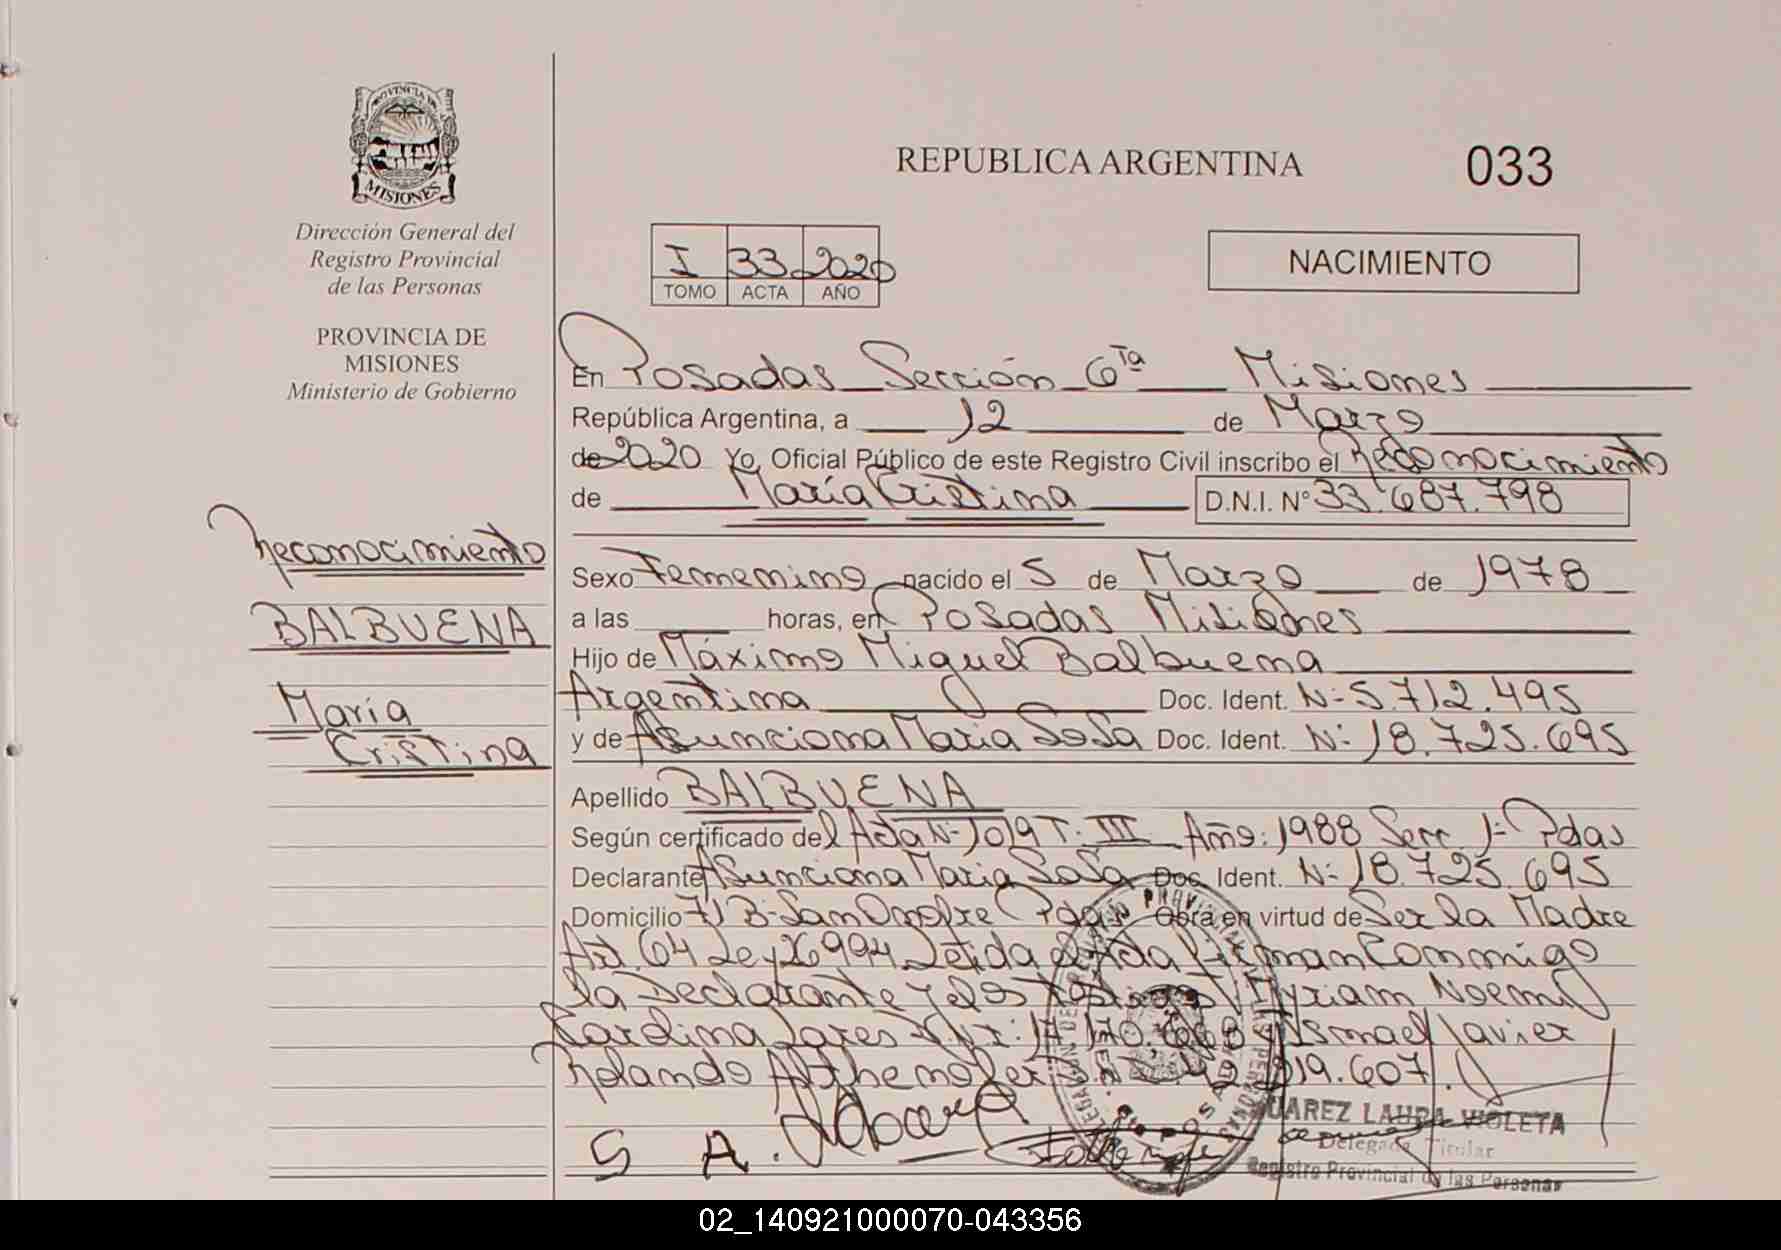 PROVINCIA DE
MISIONES
Dirección General del
Registro Provincial
de las Personas
PROVINCIA DE
MISIONES
Ministerio de Gobierno
Reconocimiento
BALBUENA
María
Cristina
REPUBLICA ARGENTINA 033
I 33 2020
TOMO ACTA AÑO
NACIMIENTO
En Posadas Sección 6ta Misiones
República Argentina, a 12 de Marzo
de 2020 Yo, Oficial Público de este Registro Civil inscribo el Reconocimiento
de María Cristina D.N.I. N° 33.687.798
Sexo Femenino nacido el 5 de Marzo de 1978
a las horas, en Posadas Misiones
Hijo de Máximo Miguel Balbuena
Argentina Doc. Ident. N- 5.712.495
y de Asunciona Maria Sosa Doc. Ident. N- 18.725.695
Apellido BALBUENA
Según certificado del Acta N- 1019 T. III Año: 1988 Secc 1- Pdas
Declarante Asunciona Maria Sosa Doc. Ident. N- 18.725.695
Domicilio 71 B- San Onofre Pdas Obra en virtud de Ser la Madre
Art. 64 Ley 26994 Leida el Acta Firman Conmigo
la Declarante y los Testigos Myriam Noemi
Ismael Javier
Rolando 19.607.
S A.
SUAREZ LAURA VIOLETA
Delegada Titular
Registro Provincial de las Personas
02_140921000070-043356